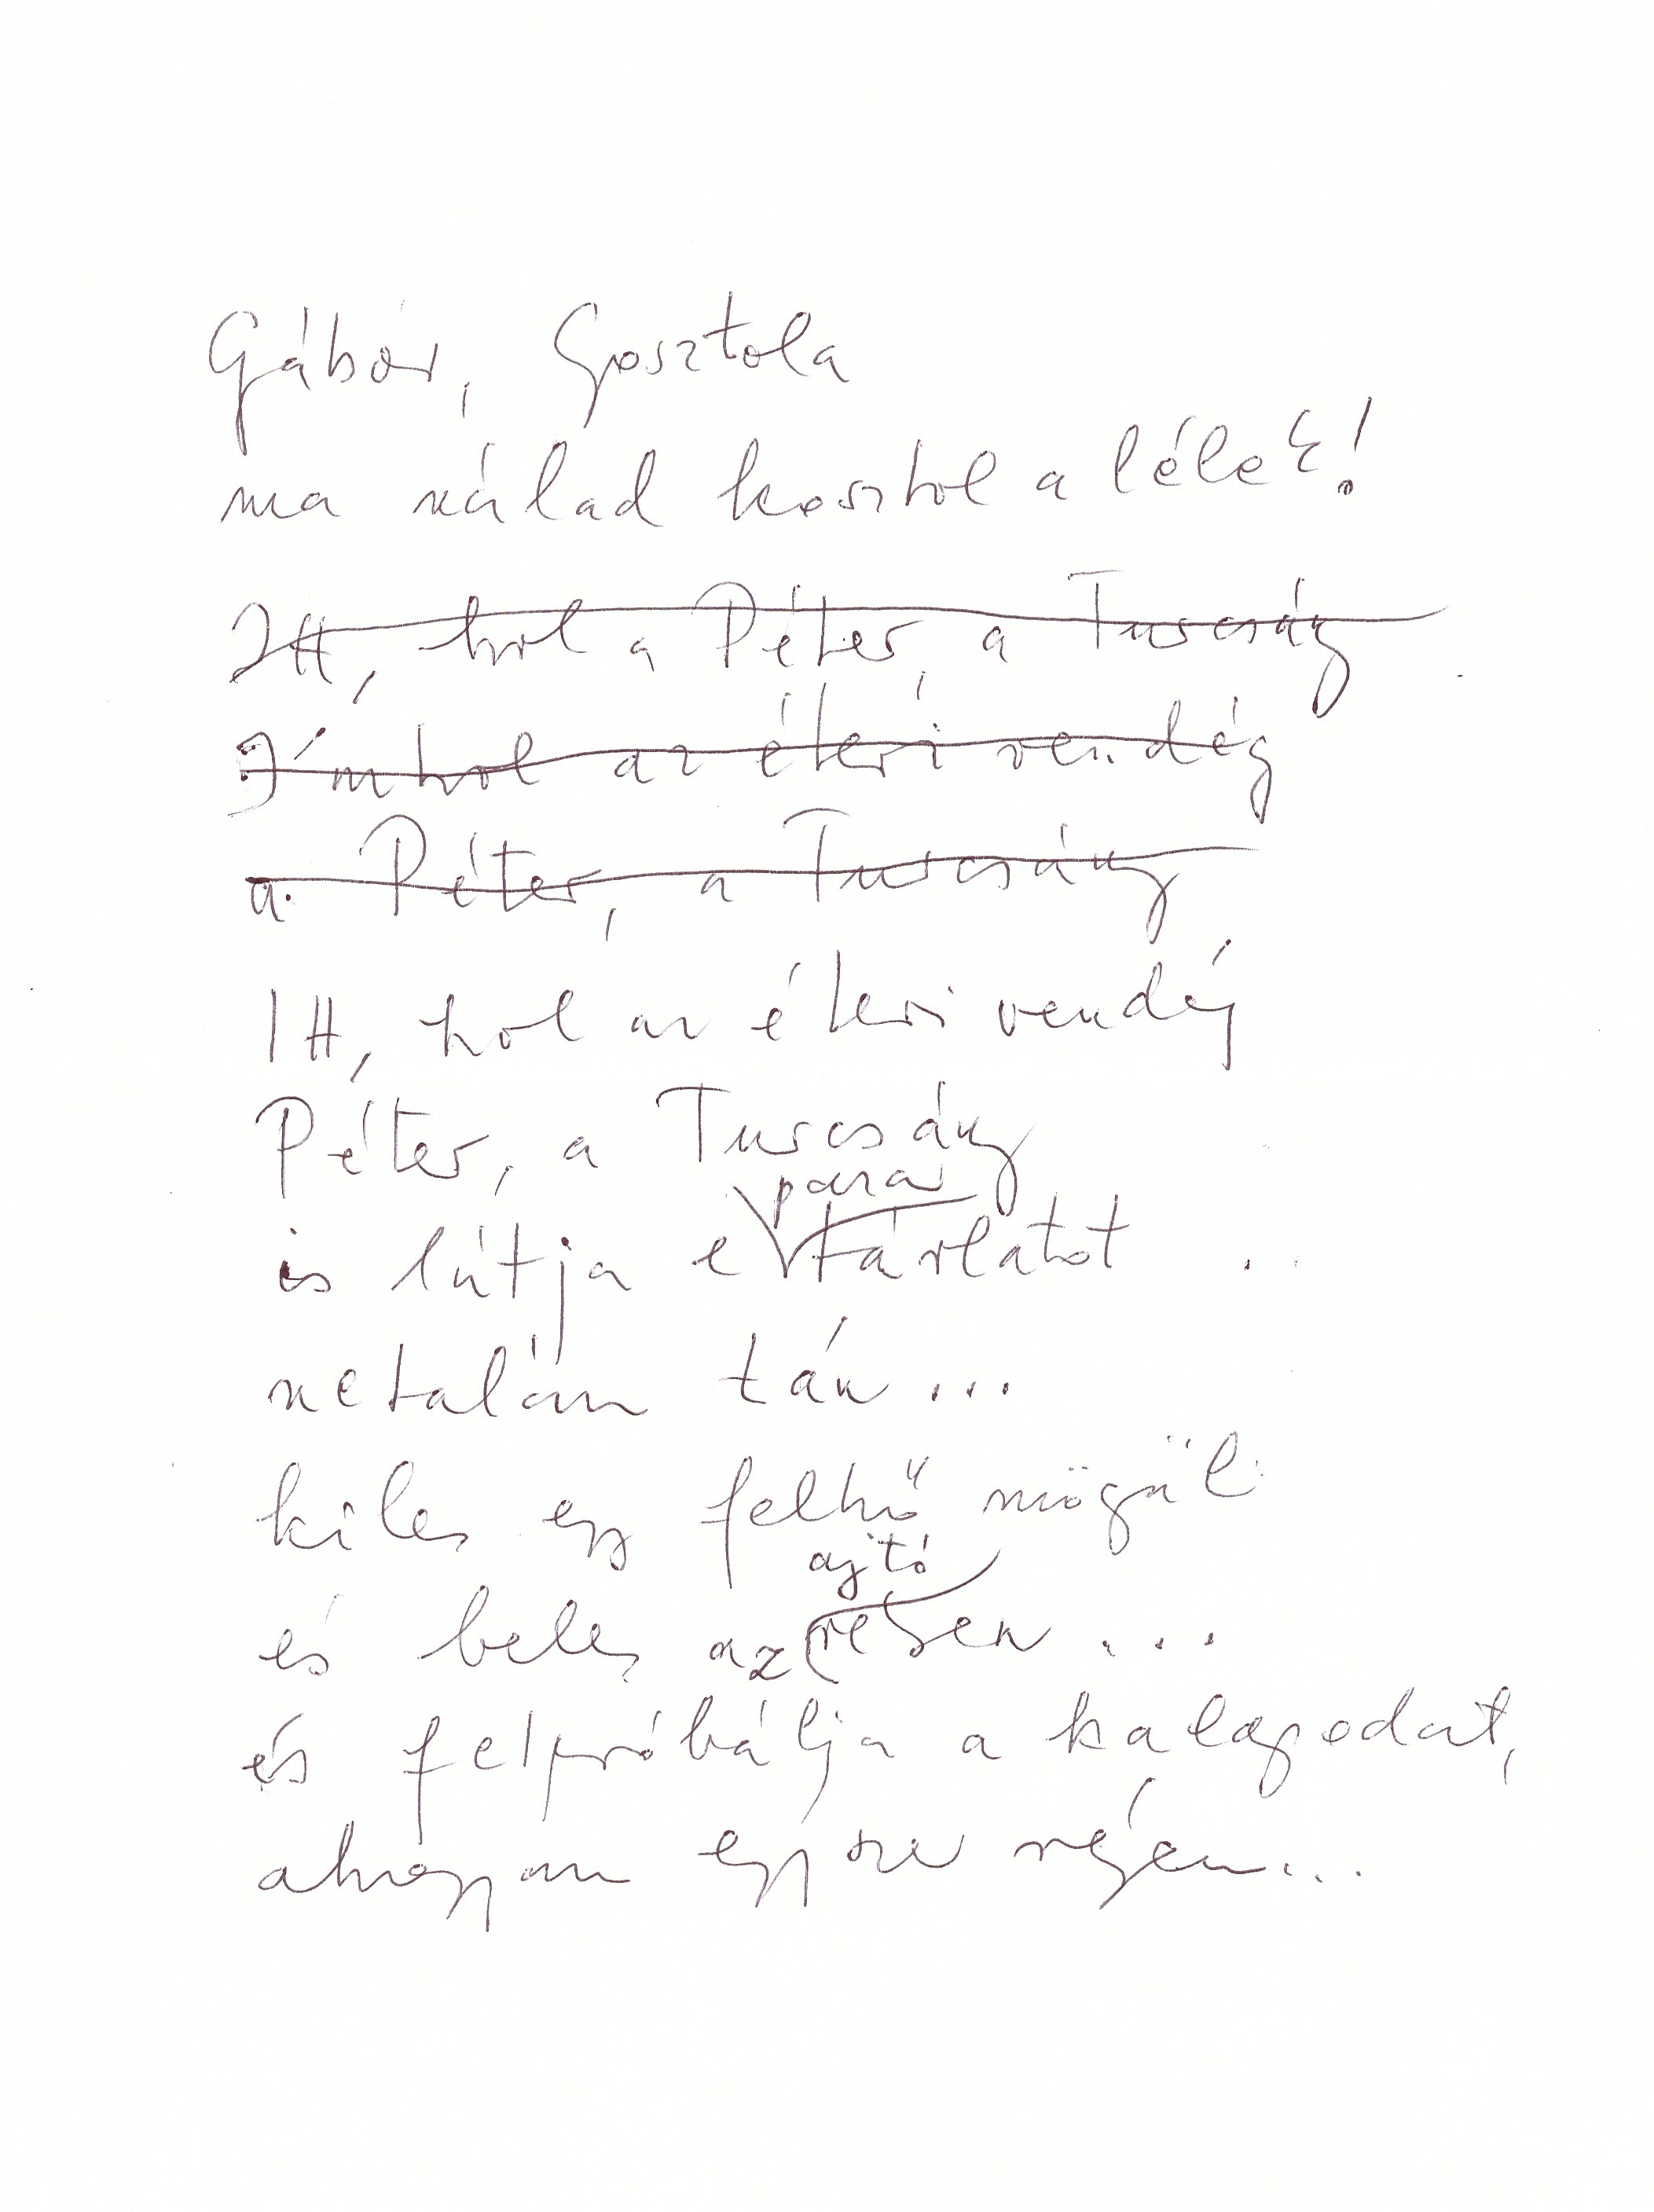 Gábor, Gosztola
ma nálad kosztol a lélek!
IH, hol a Péter, a Turcsány
Ímhol az éteri vendég
a Péter, a Turcsány
IH, hol az éteri vendég
Péter, a Turcsány
para
is látja e tárlatot
netalán tán...
kiles egy felhő mögül
ajtó
és beles az résen...
és felpróbálja a kalapodat,
ahogyan egyszer régen...